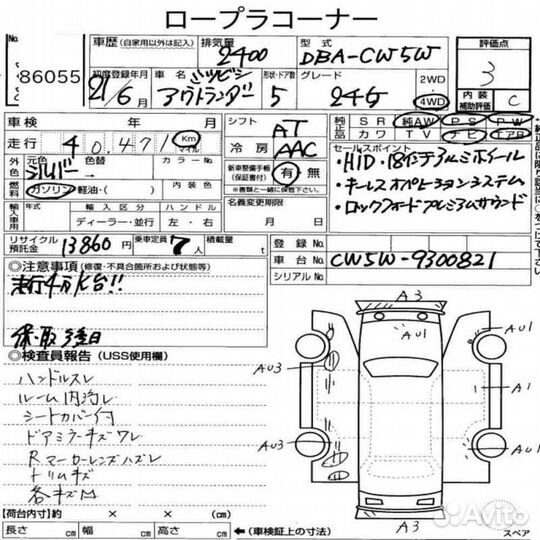 ロープラコーナー
No. 86055
車歴 (自家用以外は記入) 排気量 2400 型式 DBA-CW5W 評価点 3
初度登録年月 21/6月 車名 ミツビシ アウトランダー 形状・ドア数 5 グレード 24G 2WD 4WD 内装補助評価 C
車検 年 月 シフト AT 純正品 SR 純AW PS PW
カワ TV ナビ エアB
走行 40,471 Km マイル 冷房 AAC
外色 元色 シルバー 色替 カラーNo. 新車整備手帳(保証書付) 有 無
※書類と一緒に保管下さい。
燃料 ガソリン・軽油・( ) 内装色 名義変更期限 月 日
輸入車用 年式 輸入区分 ハンドル
ディーラー・並行 左・右
セールスポイント
・HID・18インチアルミホイール
・キーレスオペレーションシステム
・ロックフォードプレミアムサウンド
リサイクル預託金 13860円 乗車定員 7人 積載量 t
登録No.
車台No. CW5W-9300821
シリアルNo.
◎注意事項 (修復・不具合箇所および状態等)
走行4万K台!!
保・取 後日
◎検査員報告 (USS使用欄)
ハンドルスレ
ルーム内汚レ
シートカバー付
ドアミラーキズワレ
Rマーカーレンズハズレ
トリムキズ
各キズ凹
A3
AU1 AU1
AU3
A1
AU3 AU1
A3
【荷台内寸】 × × (cm)
長さ cm 幅 cm 高さ cm ←(車検証上の寸法)
スペア
Avito